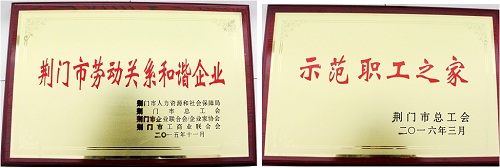 荆门市劳动关系和谐企业
荆门市人力资源和社会保障局
荆门市总工会
荆门市企业联合会/企业家协会
荆门市工商业联合会
二〇一五年十一月
示范职工之家
荆门市总工会
二〇一六年三月